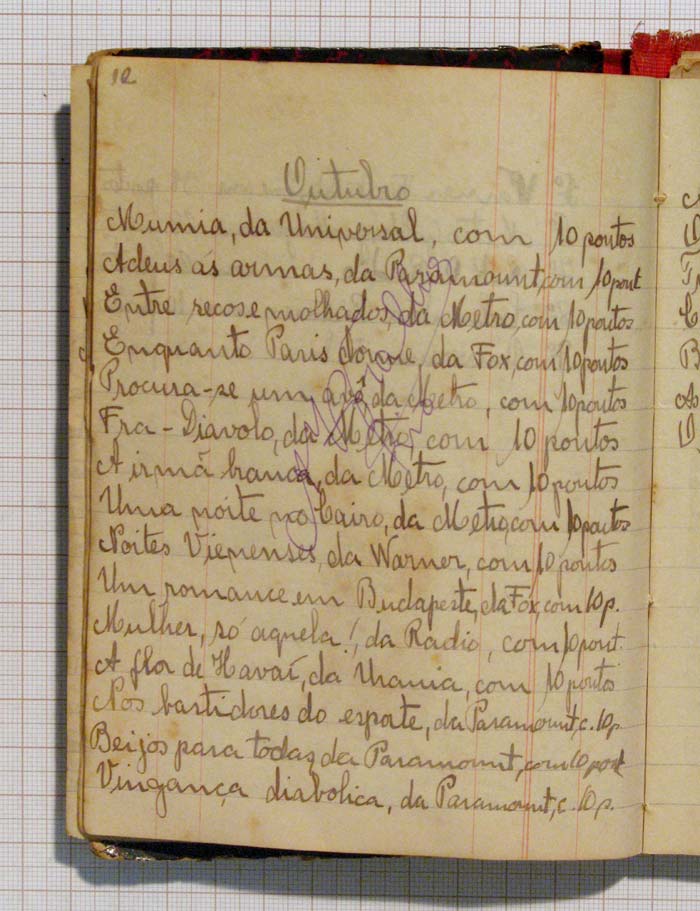 12
Outubro
Mumia, da Universal, com 10 pontos
Adeus ás armas, da Paramount, com 10 pont
Entre secos e molhados, da Metro, com 10 pontos
Enquanto Paris dorme, da Fox, com 10 pontos
Procura-se um avô da Metro, com 10 pontos
Fra-Diavolo, da Metro, com 10 pontos
A irmã branca, da Metro, com 10 pontos
Uma noite no Cairo, da Metro, com 10 pontos
Noites Vienenses, da Warner, com 10 pontos
Um romance em Budapeste, da Fox, com 10 p.
Mulher, só aquela!, da Radio, com 10 pont.
A flor de Havaí, da Urania, com 10 pontos
Nos bastidores do esporte, da Paramount, c. 10 p.
Beijos para todas, da Paramount, com 10 pont
Vingança diabolica, da Paramount, c. 10 p.